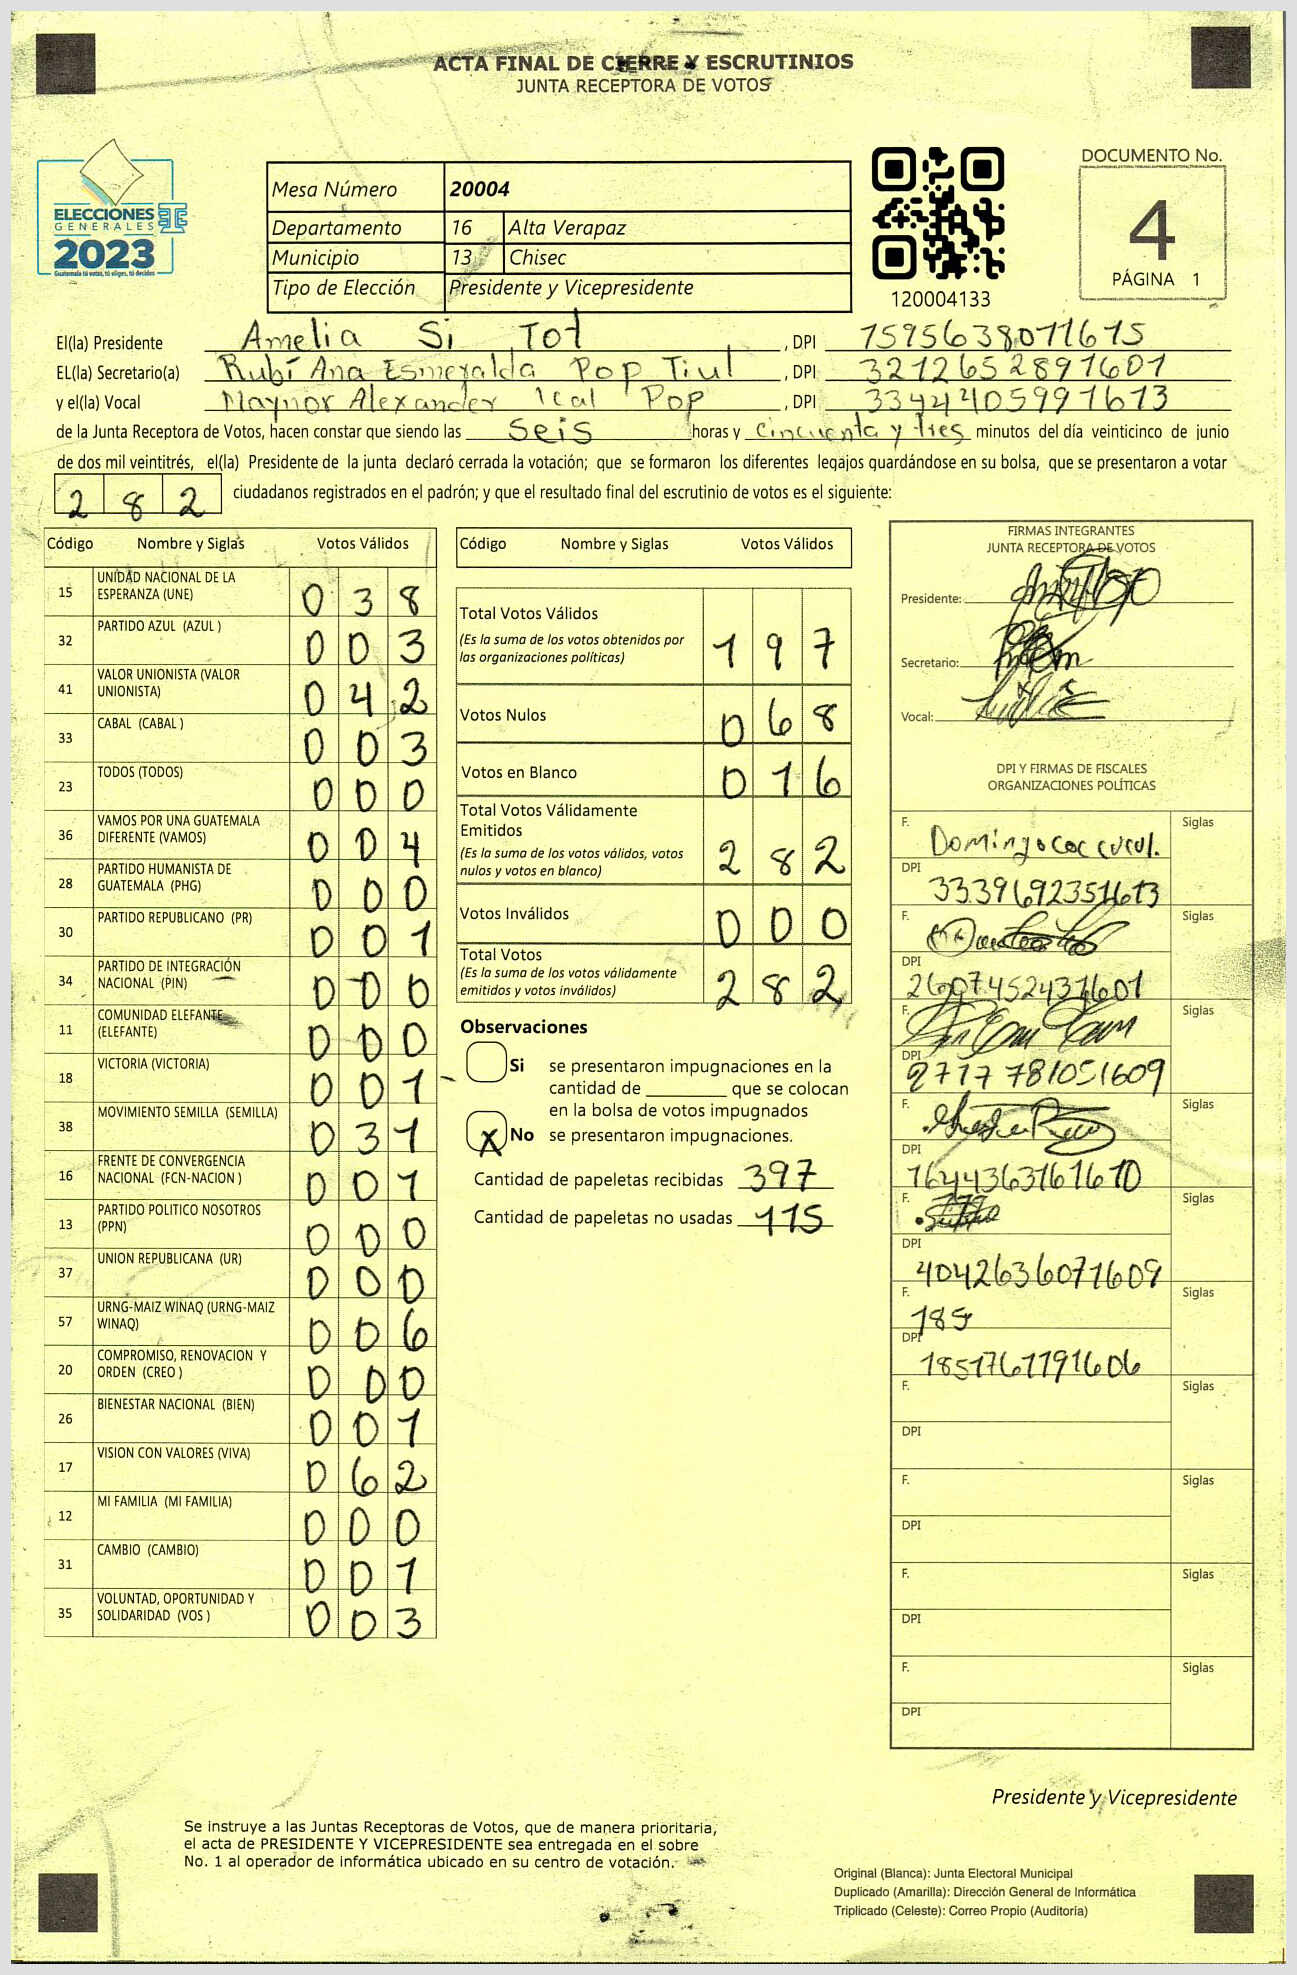 ACTA FINAL DE CIERRE Y ESCRUTINIOS
JUNTA RECEPTORA DE VOTOS
ELECCIONES
GENERALES
2023
Guatemala tú votas, tú eliges, tú decides
Mesa Número 20004
Departamento 16 Alta Verapaz
Municipio 13 Chisec
Tipo de Elección Presidente y Vicepresidente
120004133
DOCUMENTO No.
4
PÁGINA 1
El(la) Presidente Amelia Si Tot, DPI 1595638071615
EL(la) Secretario(a) Rubí Ana Esmeralda Pop Tiul, DPI 3212652891601
y el(la) Vocal Maynor Alexander Ical Pop, DPI 3344405991613
de la Junta Receptora de Votos, hacen constar que siendo las seis horas y cincuenta y tres minutos del día veinticinco de junio
de dos mil veintitrés, el(la) Presidente de la junta declaró cerrada la votación; que se formaron los diferentes legajos guardándose en su bolsa, que se presentaron a votar
282 ciudadanos registrados en el padrón; y que el resultado final del escrutinio de votos es el siguiente:
Código Nombre y Siglas Votos Válidos
15 UNIDAD NACIONAL DE LA ESPERANZA (UNE) 038
32 PARTIDO AZUL (AZUL ) 003
41 VALOR UNIONISTA (VALOR UNIONISTA) 042
33 CABAL (CABAL ) 003
23 TODOS (TODOS) 000
36 VAMOS POR UNA GUATEMALA DIFERENTE (VAMOS) 004
28 PARTIDO HUMANISTA DE GUATEMALA (PHG) 000
30 PARTIDO REPUBLICANO (PR) 001
34 PARTIDO DE INTEGRACIÓN NACIONAL (PIN) 000
11 COMUNIDAD ELEFANTE (ELEFANTE) 000
18 VICTORIA (VICTORIA) 001
38 MOVIMIENTO SEMILLA (SEMILLA) 031
16 FRENTE DE CONVERGENCIA NACIONAL (FCN-NACION ) 001
13 PARTIDO POLITICO NOSOTROS (PPN) 000
37 UNION REPUBLICANA (UR) 000
57 URNG-MAIZ WINAQ (URNG-MAIZ WINAQ) 006
20 COMPROMISO, RENOVACION Y ORDEN (CREO ) 000
26 BIENESTAR NACIONAL (BIEN) 001
17 VISION CON VALORES (VIVA) 062
12 MI FAMILIA (MI FAMILIA) 000
31 CAMBIO (CAMBIO) 001
35 VOLUNTAD, OPORTUNIDAD Y SOLIDARIDAD (VOS ) 003
Código Nombre y Siglas Votos Válidos
Total Votos Válidos 197
(Es la suma de los votos obtenidos por las organizaciones políticas)
Votos Nulos 068
Votos en Blanco 016
Total Votos Válidamente Emitidos 282
(Es la suma de los votos válidos, votos nulos y votos en blanco)
Votos Inválidos 000
Total Votos 282
(Es la suma de los votos válidamente emitidos y votos inválidos)
Observaciones
Si se presentaron impugnaciones en la
cantidad de ________ que se colocan
en la bolsa de votos impugnados
X No se presentaron impugnaciones.
Cantidad de papeletas recibidas 397
Cantidad de papeletas no usadas 115
FIRMAS INTEGRANTES
JUNTA RECEPTORA DE VOTOS
Presidente:
Secretario:
Vocal:
DPI Y FIRMAS DE FISCALES
ORGANIZACIONES POLÍTICAS
F. Domingo Coc cucul. Siglas
DPI 3339692351613
F. Siglas
DPI 2607452431601
F. Siglas
DPI 2717781051609
F. Siglas
DPI 1644363161610
F. Siglas
DPI 4042636071609
F. 185 Siglas
DPI 1851761191606
F. Siglas
DPI
F. Siglas
DPI
F. Siglas
DPI
F. Siglas
DPI
Presidente y Vicepresidente
Se instruye a las Juntas Receptoras de Votos, que de manera prioritaria,
el acta de PRESIDENTE Y VICEPRESIDENTE sea entregada en el sobre
No. 1 al operador de informática ubicado en su centro de votación.
Original (Blanca): Junta Electoral Municipal
Duplicado (Amarilla): Dirección General de Informática
Triplicado (Celeste): Correo Propio (Auditoría)